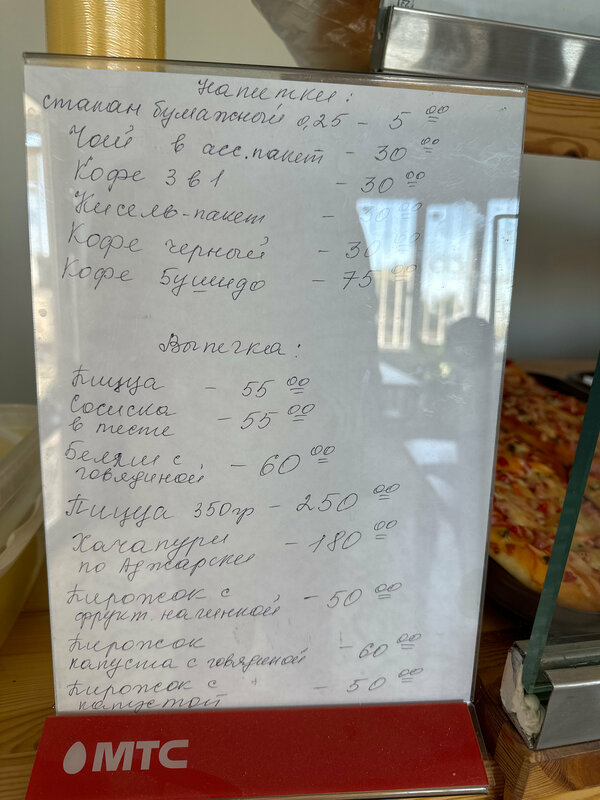 Напитки:
стакан бумажный 0,25 - 5 00
Чай в асс. пакет - 30 00
Кофе 3 в 1 - 30 00
Кисель-пакет - 30 00
Кофе черный - 30 00
Кофе Бушидо - 75 00
Выпечка:
Пицца - 55 00
Сосиска
в тесте - 55 00
Беляши с
говядиной - 60 00
Пицца 350гр - 250 00
Хачапури
по Аджарски - 180 00
Пирожок с
фрукт. начинкой - 50 00
Пирожок
капуста с говядиной - 60 00
Пирожок с
капустой - 50 00
МТС